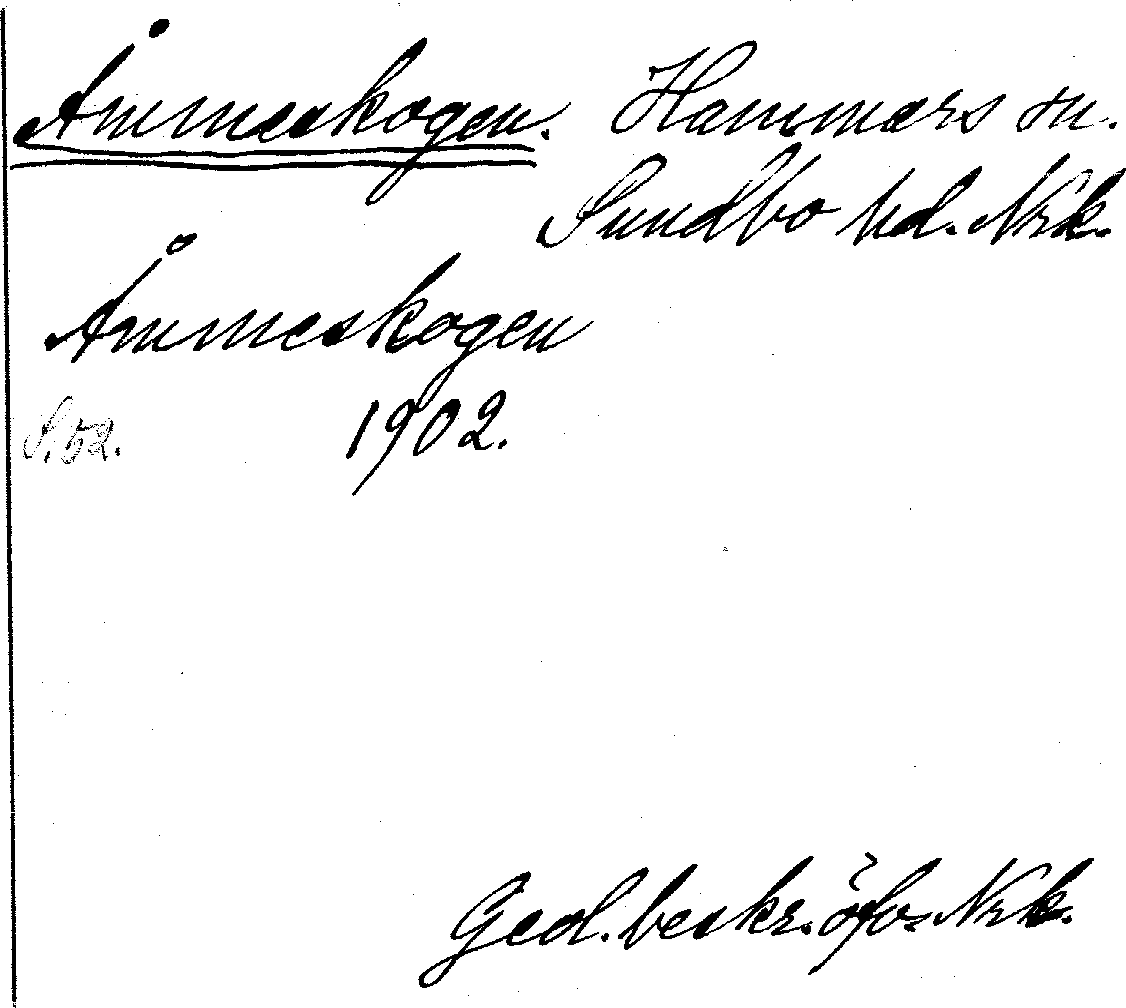 Åmmeskogen. Hammars sn.
Sundbo hd. Nrk.
Åmmeskogen
S. 52. 1902.
Geol. beskr. öfv. Nrk.